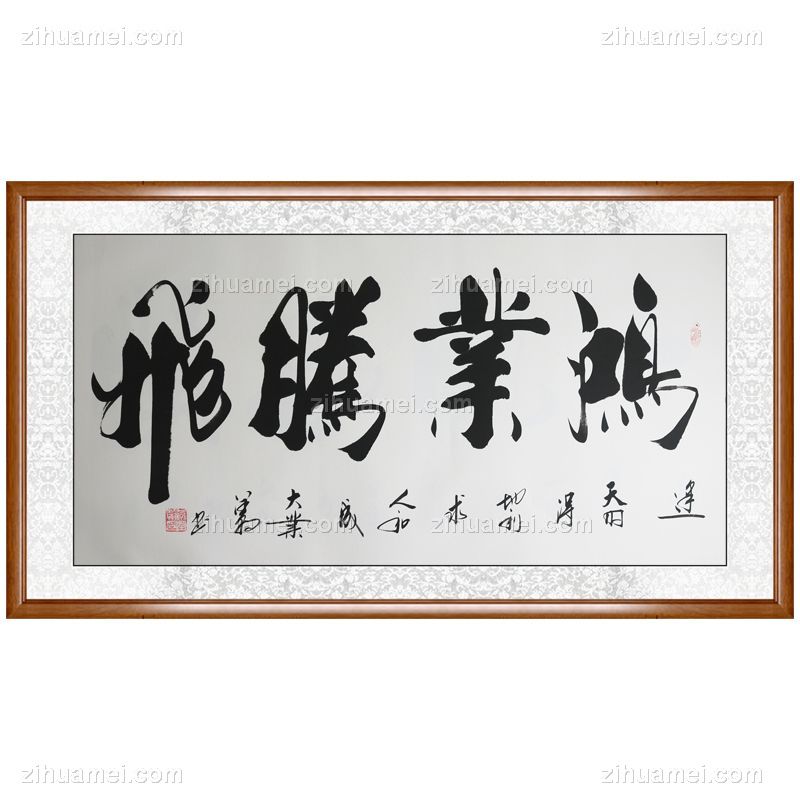 zihuamei.com zihuamei.com
zihuamei.com zihuamei.com
鴻業騰飛
zihuamei.com
天时得地利求人和成大業 书
zihuamei.com zihuamei.com